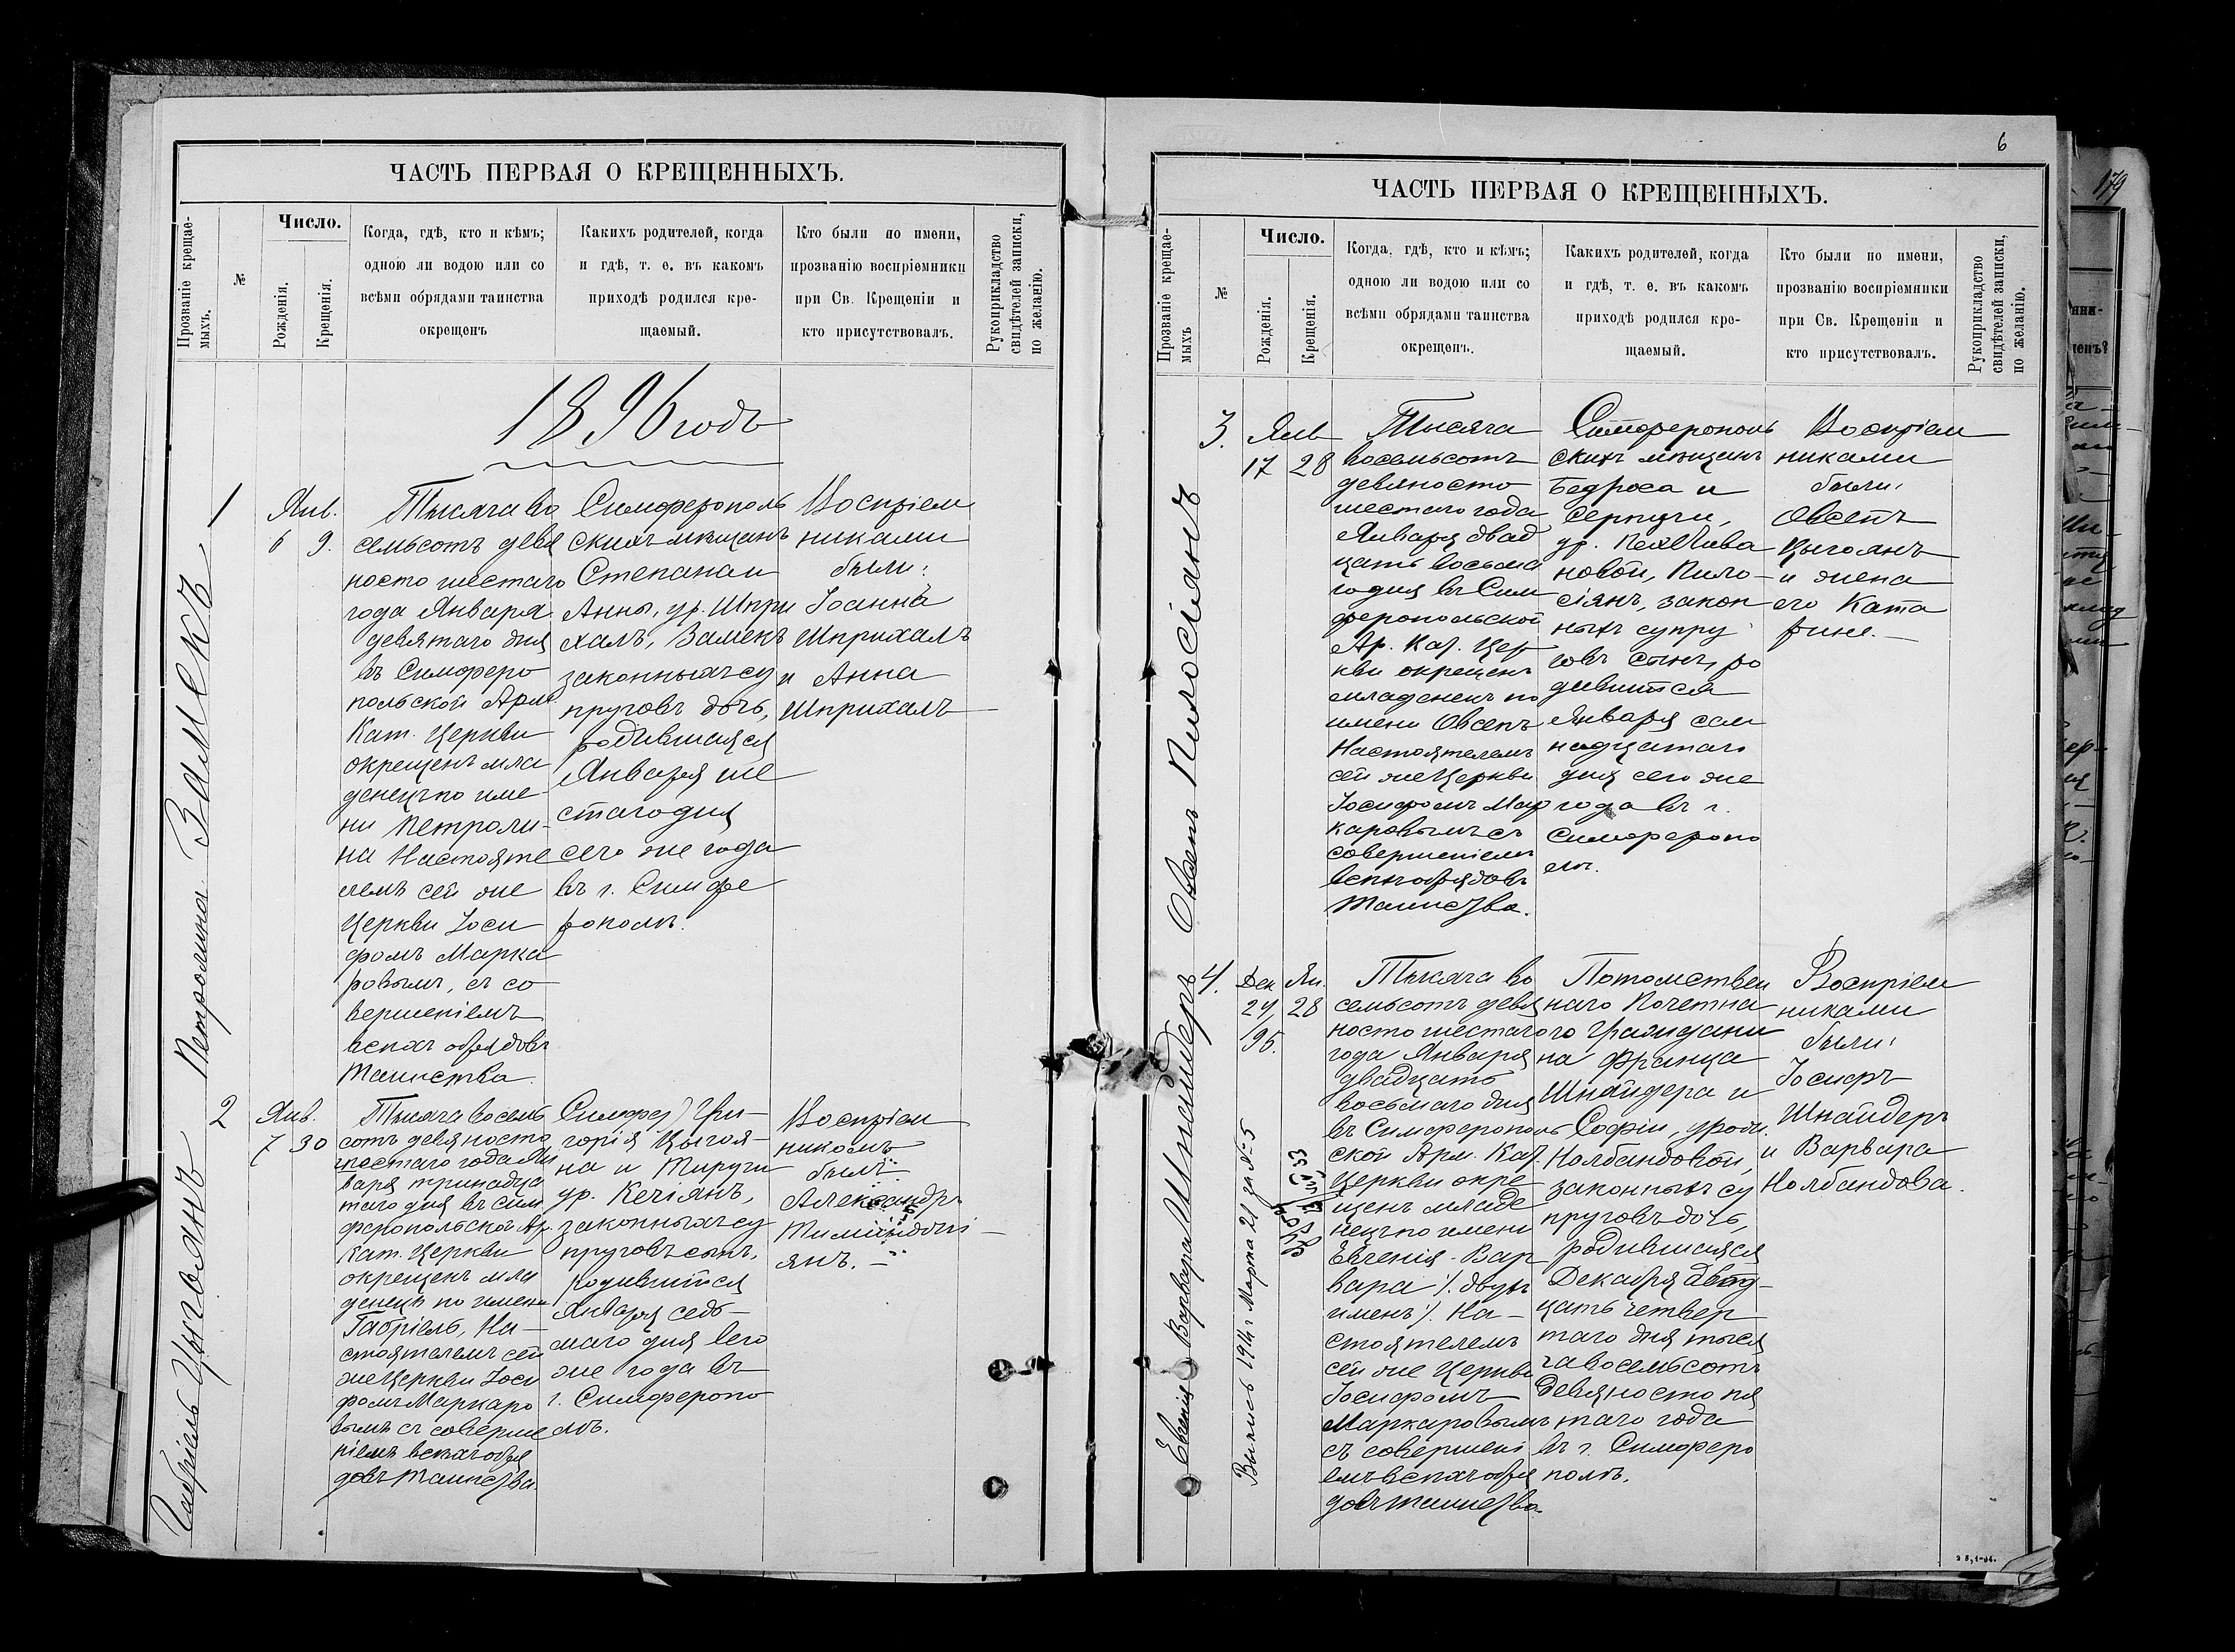 ЧАСТЬ ПЕРВАЯ О КРЕЩЕННЫХЪ.
Прозваніе крещае-
мыхъ.
№
Число.
Рожденія.
Крещенія.
Когда, гдѣ, кто и кѣмъ;
одною ли водою или со
всѣми обрядами таинства
окрещенъ
Какихъ родителей, когда
и гдѣ, т. е. въ какомъ
приходѣ родился кре-
щаемый.
Кто были по имени,
прозванію воспріемники
при Св. Крещеніи и
кто присутствовалъ.
Рукоприкладство
свидѣтелей записки,
по желанію.
1896 годъ
Петролина Замекъ
1
Янв.
6 9.
Тысяча во
семьсотъ девя
носто шестаго
года Января
девятаго дня
въ Симферо
польской Арм
Кат. Церкви
окрещенъ мла
денецъ по име
ни Петроли-
на Настояте
лемъ сей же
Церкви Іоси
фомъ Марка
ровымъ, съ со
вершеніемъ
всѣхъ обрядовъ
Таинства.
Симферополь
скихъ мѣщанъ
Степана и
Анны, ур. Шпри
халъ, Замекъ
законныхъ су
пруговъ дочь,
родившаяся
Января ше
стаго дня
сего же года
въ г. Симфе
рополѣ.
Воспріем
никами
были:
Іоанна
Шприхалъ
и Анна
Шприхалъ
Габріель Цыгоянъ
2
Янв.
7 30
Тысяча восемь
сотъ девяносто
шестаго года Ян
варя тринадца
таго дня въ Сим
феропольской Ар.
Кат. Церкви
окрещенъ мла
денецъ по имени
Габріель, На-
стоятелемъ сей
же Церкви Іоси
фомъ Маркаро
вымъ съ соверше
ніемъ всѣхъ обря
довъ Таинства.
Симфер) Гри-
горія Цыгоя-
на и Тируги
ур. Кечіянъ,
законныхъ су
пруговъ сынъ,
родившійся
Января седь-
маго дня сего
же года въ
г. Симферопо
лѣ.
Воспріем
никомъ
былъ:
Александръ
янъ.
6
ЧАСТЬ ПЕРВАЯ О КРЕЩЕННЫХЪ.
Прозваніе крещае-
мыхъ
№
Число.
Рожденія.
Крещенія.
Когда, гдѣ, кто и кѣмъ;
одною ли водою или со
всѣми обрядами таинства
окрещенъ.
Какихъ родителей, когда
и гдѣ, т. е. въ какомъ
приходѣ родился кре-
щаемый.
Кто были по имени,
прозванію воспріемники
при Св. Крещеніи и
кто присутствовалъ.
Рукоприкладство
свидѣтелей записки,
по желанію.
Овсепъ Пилосіянъ
3.
Янв
17 28
Тысяча
восемьсотъ
девяносто
шестаго года
Января двад
цать восьма
го дня въ Сим
феропольской
Ар. Кат. Цер
кви окрещенъ
младенецъ по
имени Овсепъ
Настоятелемъ
сей же Церкви
Іосифомъ Мар
каровымъ съ
совершеніемъ
всѣхъ обрядовъ
Таинства.
Симферополь
скихъ мѣщанъ
Бедроса и
Серпуги,
ур.
новой, Пило-
сіянъ, закон
ныхъ супру
говъ сынъ, ро
дившійся
Января сем
надцатаго
дня сего же
года въ г.
Симферопо
лѣ.
Воспріем
никами
были:
Овсепъ
Цыгоянъ
и жена
его Ката
рине.
Евгенія Варвара Шнайдеръ
Выпись 1914 г. Марта 21 за № 5
4.
Дек Ян.
29, 28
95.
Тысяча во
семьсотъ девя
носто шестаго
года Января
двадцать
восьмаго дня
въ Симферополь
ской Арм. Кат.
Церкви окре
щенъ младе
нецъ по имени
Евгенія-Вар
вара /. двухъ
именъ /. На-
стоятелемъ
сей же Церкви
Іосифомъ
Маркаровымъ
съ совершені
емъ всѣхъ обря
довъ таинства.
Потомствен
наго Почетна
го Граждани
на Франца
Шнайдера и
Софіи, урож.
Налбандовой,
законныхъ су
пруговъ дочь,
родившаяся
Декабря двад-
цать четвер
таго дня тыся
ча восемьсотъ
девяносто пя
таго года
въ г. Симферо
полѣ.
Воспріем
никами
были:
Іосифъ
Шнайдеръ
и Варвара
Налбандова.
179